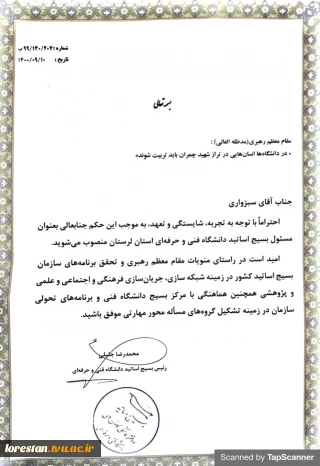 شماره: ۹۹/۱۴۰/۲۰۷ ب
تاریخ: ۱۴۰۰/۰۹/۱۰
بسمه تعالی
مقام معظم رهبری(مدظله العالی) :
« در دانشگاه‌ها انسان‌هایی در تراز شهید چمران باید تربیت شوند»
جناب آقای سبزواری
احتراماً با توجه به تجربه، شایستگی و تعهد، به موجب این حکم جنابعالی بعنوان
مسئول بسیج اساتید دانشگاه فنی و حرفه‌ای استان لرستان منصوب می‌شوید.
امید است در راستای منویات مقام معظم رهبری و تحقق برنامه‌های سازمان
بسیج اساتید کشور در زمینه شبکه سازی، جریان‌سازی فرهنگی و اجتماعی و علمی
و پژوهشی همچنین هماهنگی با مرکز بسیج دانشگاه فنی و برنامه‌های تحولی
سازمان در زمینه تشکیل گروه‌های مسأله محور مهارتی موفق باشید.
محمدرضا جلیلی
رئیس بسیج اساتید دانشگاه فنی و حرفه‌ای
lorestan.tvu.ac.ir
Scanned by TapScanner